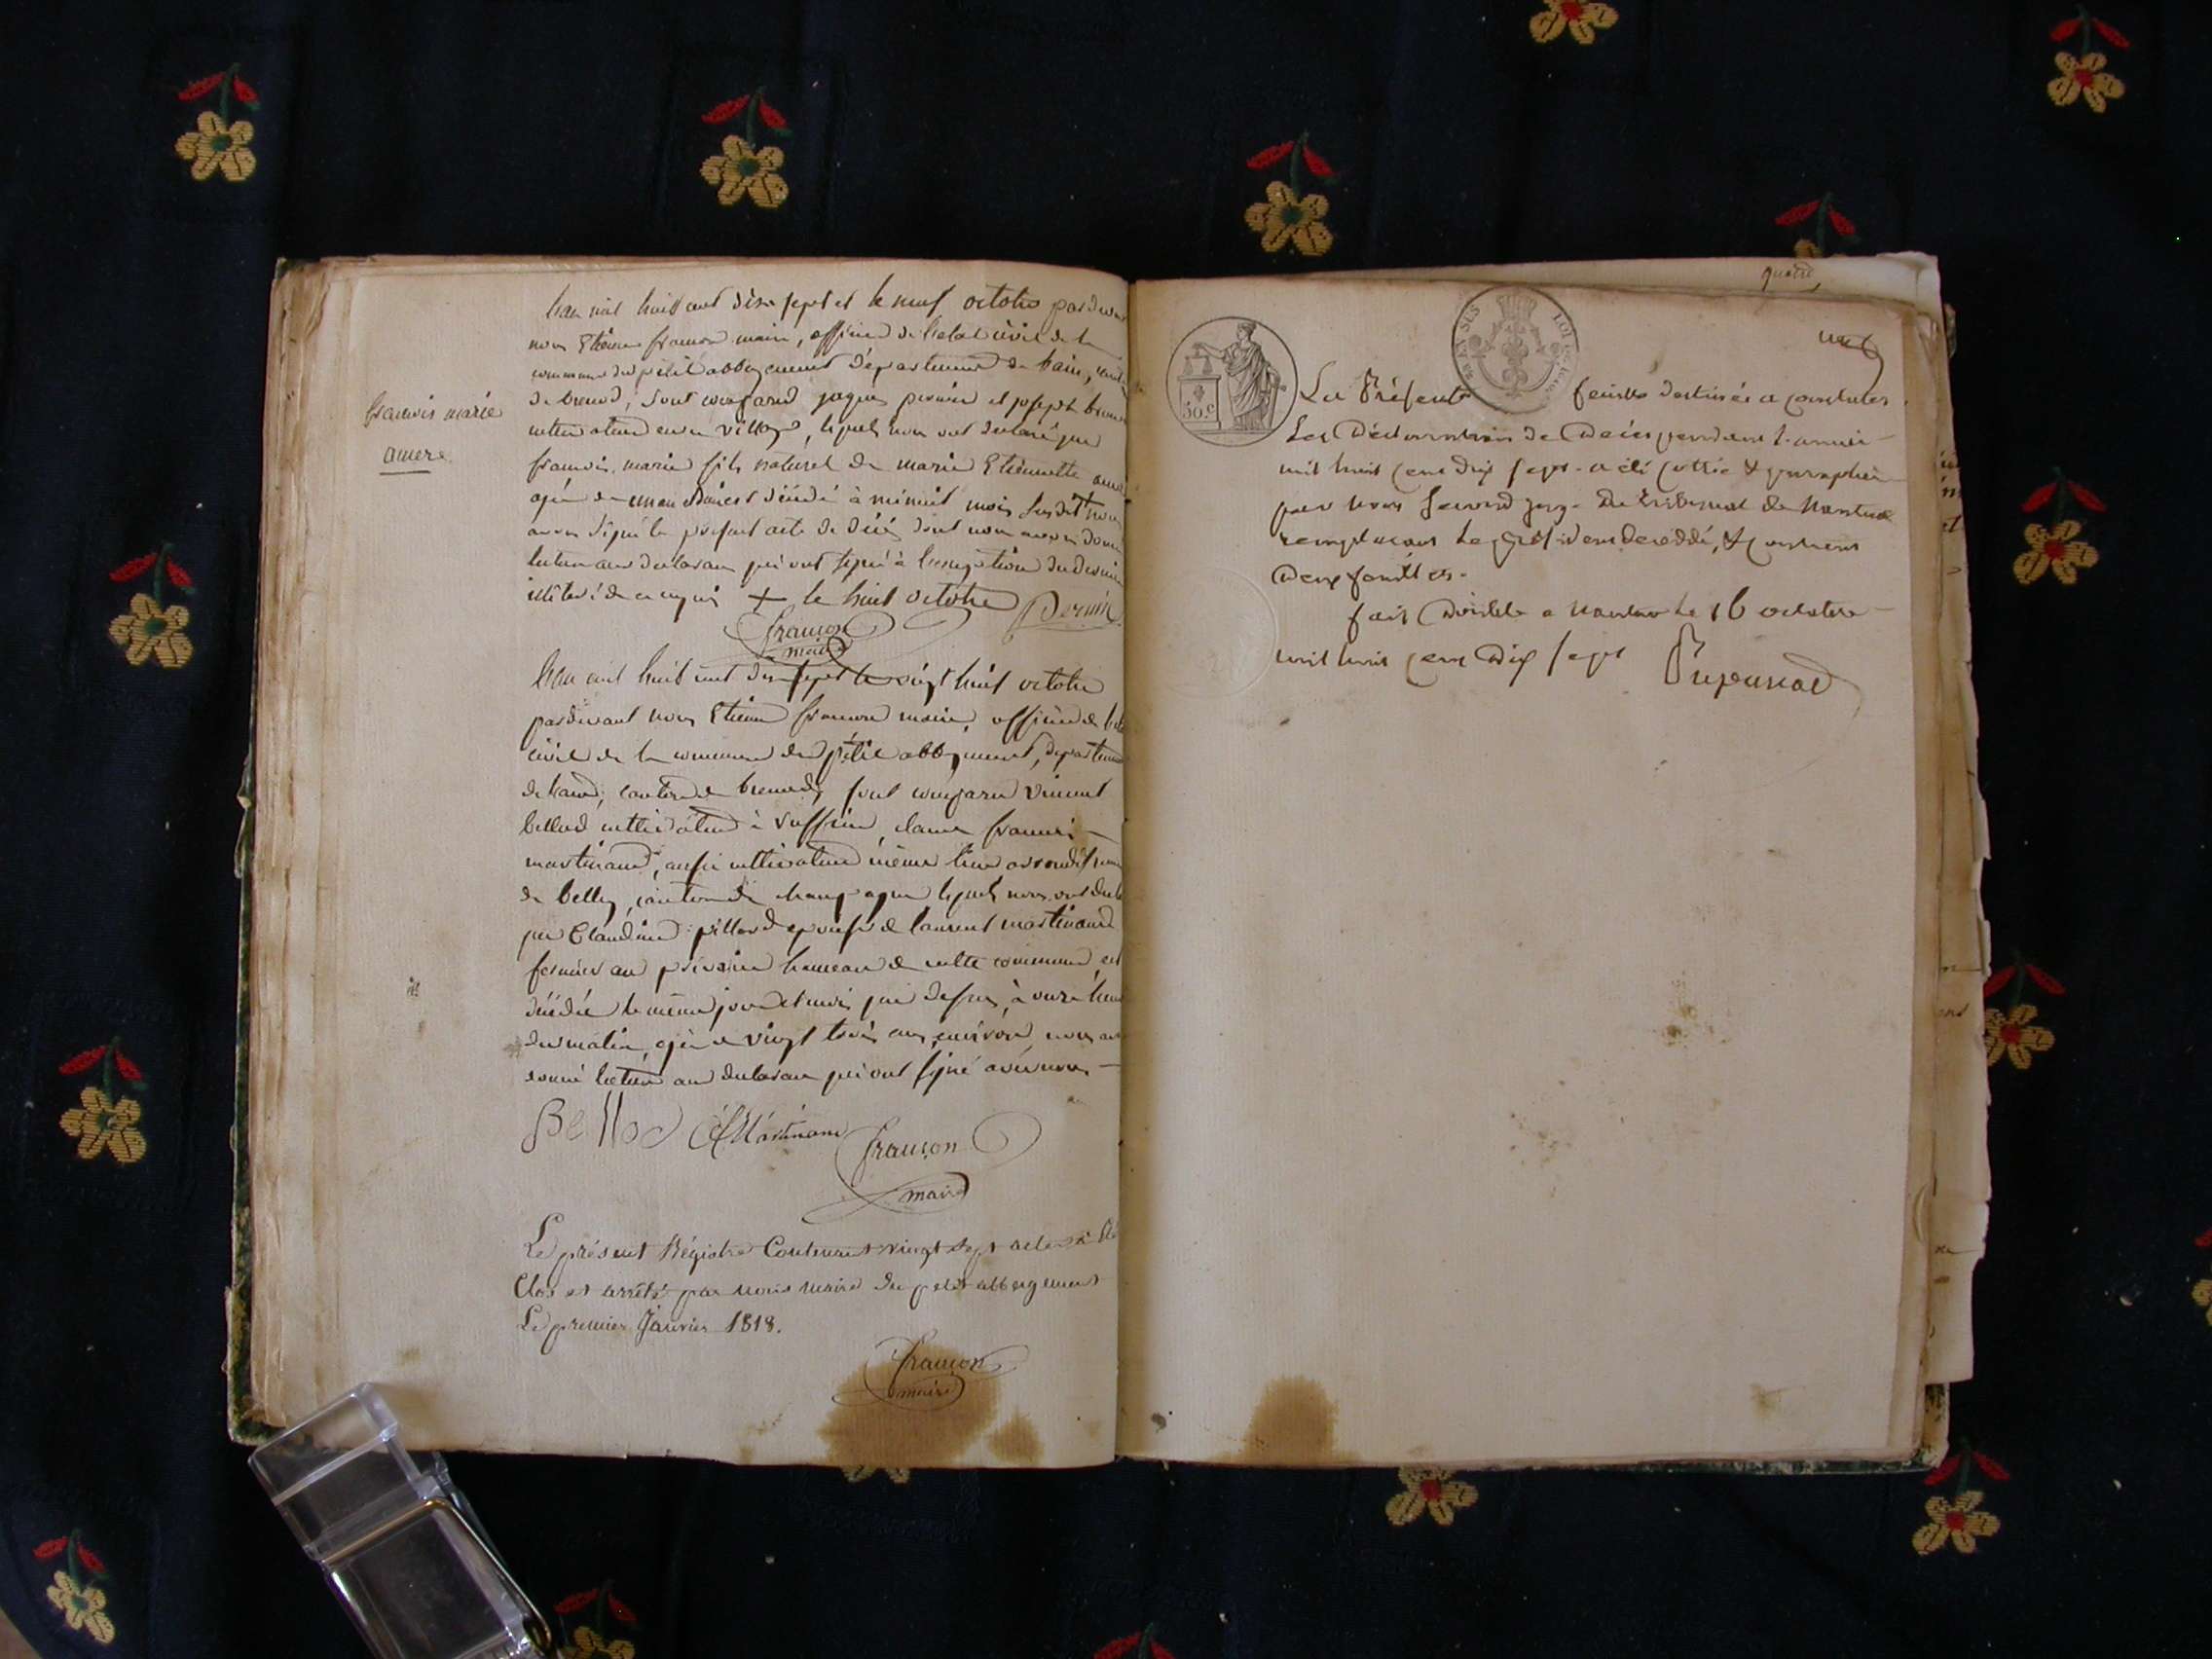 françois marie
amere
Lan mil huit cent dix sept et le neuf octobre pardevant
nous Etienne françon maire, officier de letat civil de la
commune du petit abbergement département de lain, canton
de brenod, sont comparus jaques pernin et joseph
cultivateurs en ce village, lequels nous ont declaré que
françois marie fils naturel de marie Etiennette amere
agé de un an est décédé à minuit mois susdit nous
avons signé le présent acte de décès dont nous avons donné
lecture aux declarans qui ont signé à l'exception du dernier
illiteré de ce requis + le huit octobre Pernin
françon
maire
Lan mil huit cent dix sept le vingt huit octobre
pardevant nous Etienne françon maire, officier de letat
civil de la commune du petit abbergement, departement
de laind, canton de brenod, sont comparu vincent
bellod cultivateur à Ruffieu, claude francois
martinand, aussi cultivateur même lieu arrondissement
de belley, canton de champagne lequels nous ont declaré
que Claudine pillard epouse de laurent martinand
fermier au hameau de cette commune est
décédée le même jour et mois que dessus, à onze heures
du matin, agée de vingt trois ans environ, nous avons
donné lecture aux declarans qui ont signé avec nous
Bellod C f Martinand françon
maire
Le présent Régistre Contenant vingt sept actes a été
Clos et arrêté par nous maire du petit abbergement
Le premier Janvier 1818.
françon
maire
quatre
EN SUS LOI DE 1816
un
50.c
La Présente feuille destinée a constater
Les Déclarations de Décès pendant l'année
mil huit cent dix sept a été cottée & paraphée
par nous Second juge du tribunal de Nantua
remplaçant le président décédé, & contient
Deux feuilles.
fait double a Nantua le 16 octobre
mil huit cent dix sept